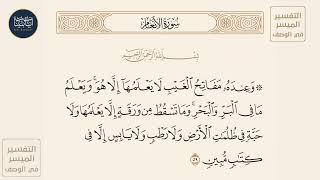 التفسير
الميسر
في الوصف
سُورَةُ الأَنْعَامِ
بِسْمِ اللَّهِ الرَّحْمَٰنِ الرَّحِيمِ
۞ وَعِندَهُۥ مَفَاتِحُ ٱلْغَيْبِ لَا يَعْلَمُهَآ إِلَّا هُوَۚ وَيَعْلَمُ
مَا فِي ٱلْبَرِّ وَٱلْبَحْرِۚ وَمَا تَسْقُطُ مِن وَرَقَةٍ إِلَّا يَعْلَمُهَا وَلَا
حَبَّةٍ فِي ظُلُمَٰتِ ٱلْأَرْضِ وَلَا رَطْبٍ وَلَا يَابِسٍ إِلَّا فِي
كِتَٰبٍ مُّبِينٍ ٥٩
التفسير
الميسر
في الوصف